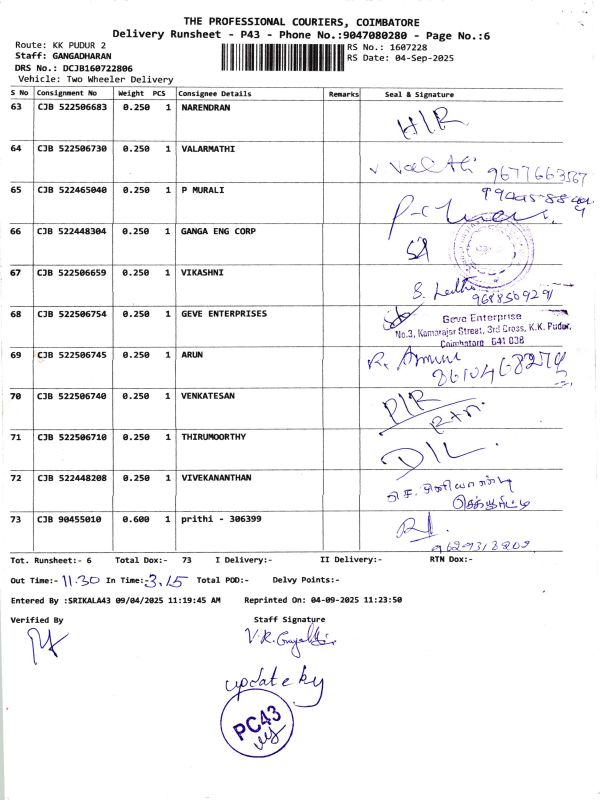 THE PROFESSIONAL COURIERS, COIMBATORE
Delivery Runsheet - P43 - Phone No.:9047080280 - Page No.:6
Route: KK PUDUR 2
RS No.: 1607228
Staff: GANGADHARAN
RS Date: 04-Sep-2025
DRS No.: DCJB160722806
Vehicle: Two Wheeler Delivery
S No Consignment No Weight PCS Consignee Details Remarks Seal & Signature
63 CJB 522506683 0.250 1 NARENDRAN H/R
64 CJB 522506730 0.250 1 VALARMATHI
9677663567
65 CJB 522465040 0.250 1 P MURALI
66 CJB 522448304 0.250 1 GANGA ENG CORP
67 CJB 522506659 0.250 1 VIKASHNI
68 CJB 522506754 0.250 1 GEVE ENTERPRISES
Geve Enterprise
No.3, Kamarajar Street, 3rd Cross, K.K. Pudur,
Coimbatore 641 038
69 CJB 522506745 0.250 1 ARUN
70 CJB 522506740 0.250 1 VENKATESAN
71 CJB 522506710 0.250 1 THIRUMOORTHY
72 CJB 522448208 0.250 1 VIVEKANANTHAN
73 CJB 90455010 0.600 1 prithi - 306399
Tot. Runsheet:- 6 Total Dox:- 73 I Delivery:- II Delivery:- RTN Dox:-
Out Time:- 11.30 In Time:- 3.15 Total POD:- Delvy Points:-
Entered By :SRIKALA43 09/04/2025 11:19:45 AM Reprinted On: 04-09-2025 11:23:50
Verified By Staff Signature
update by
PC43